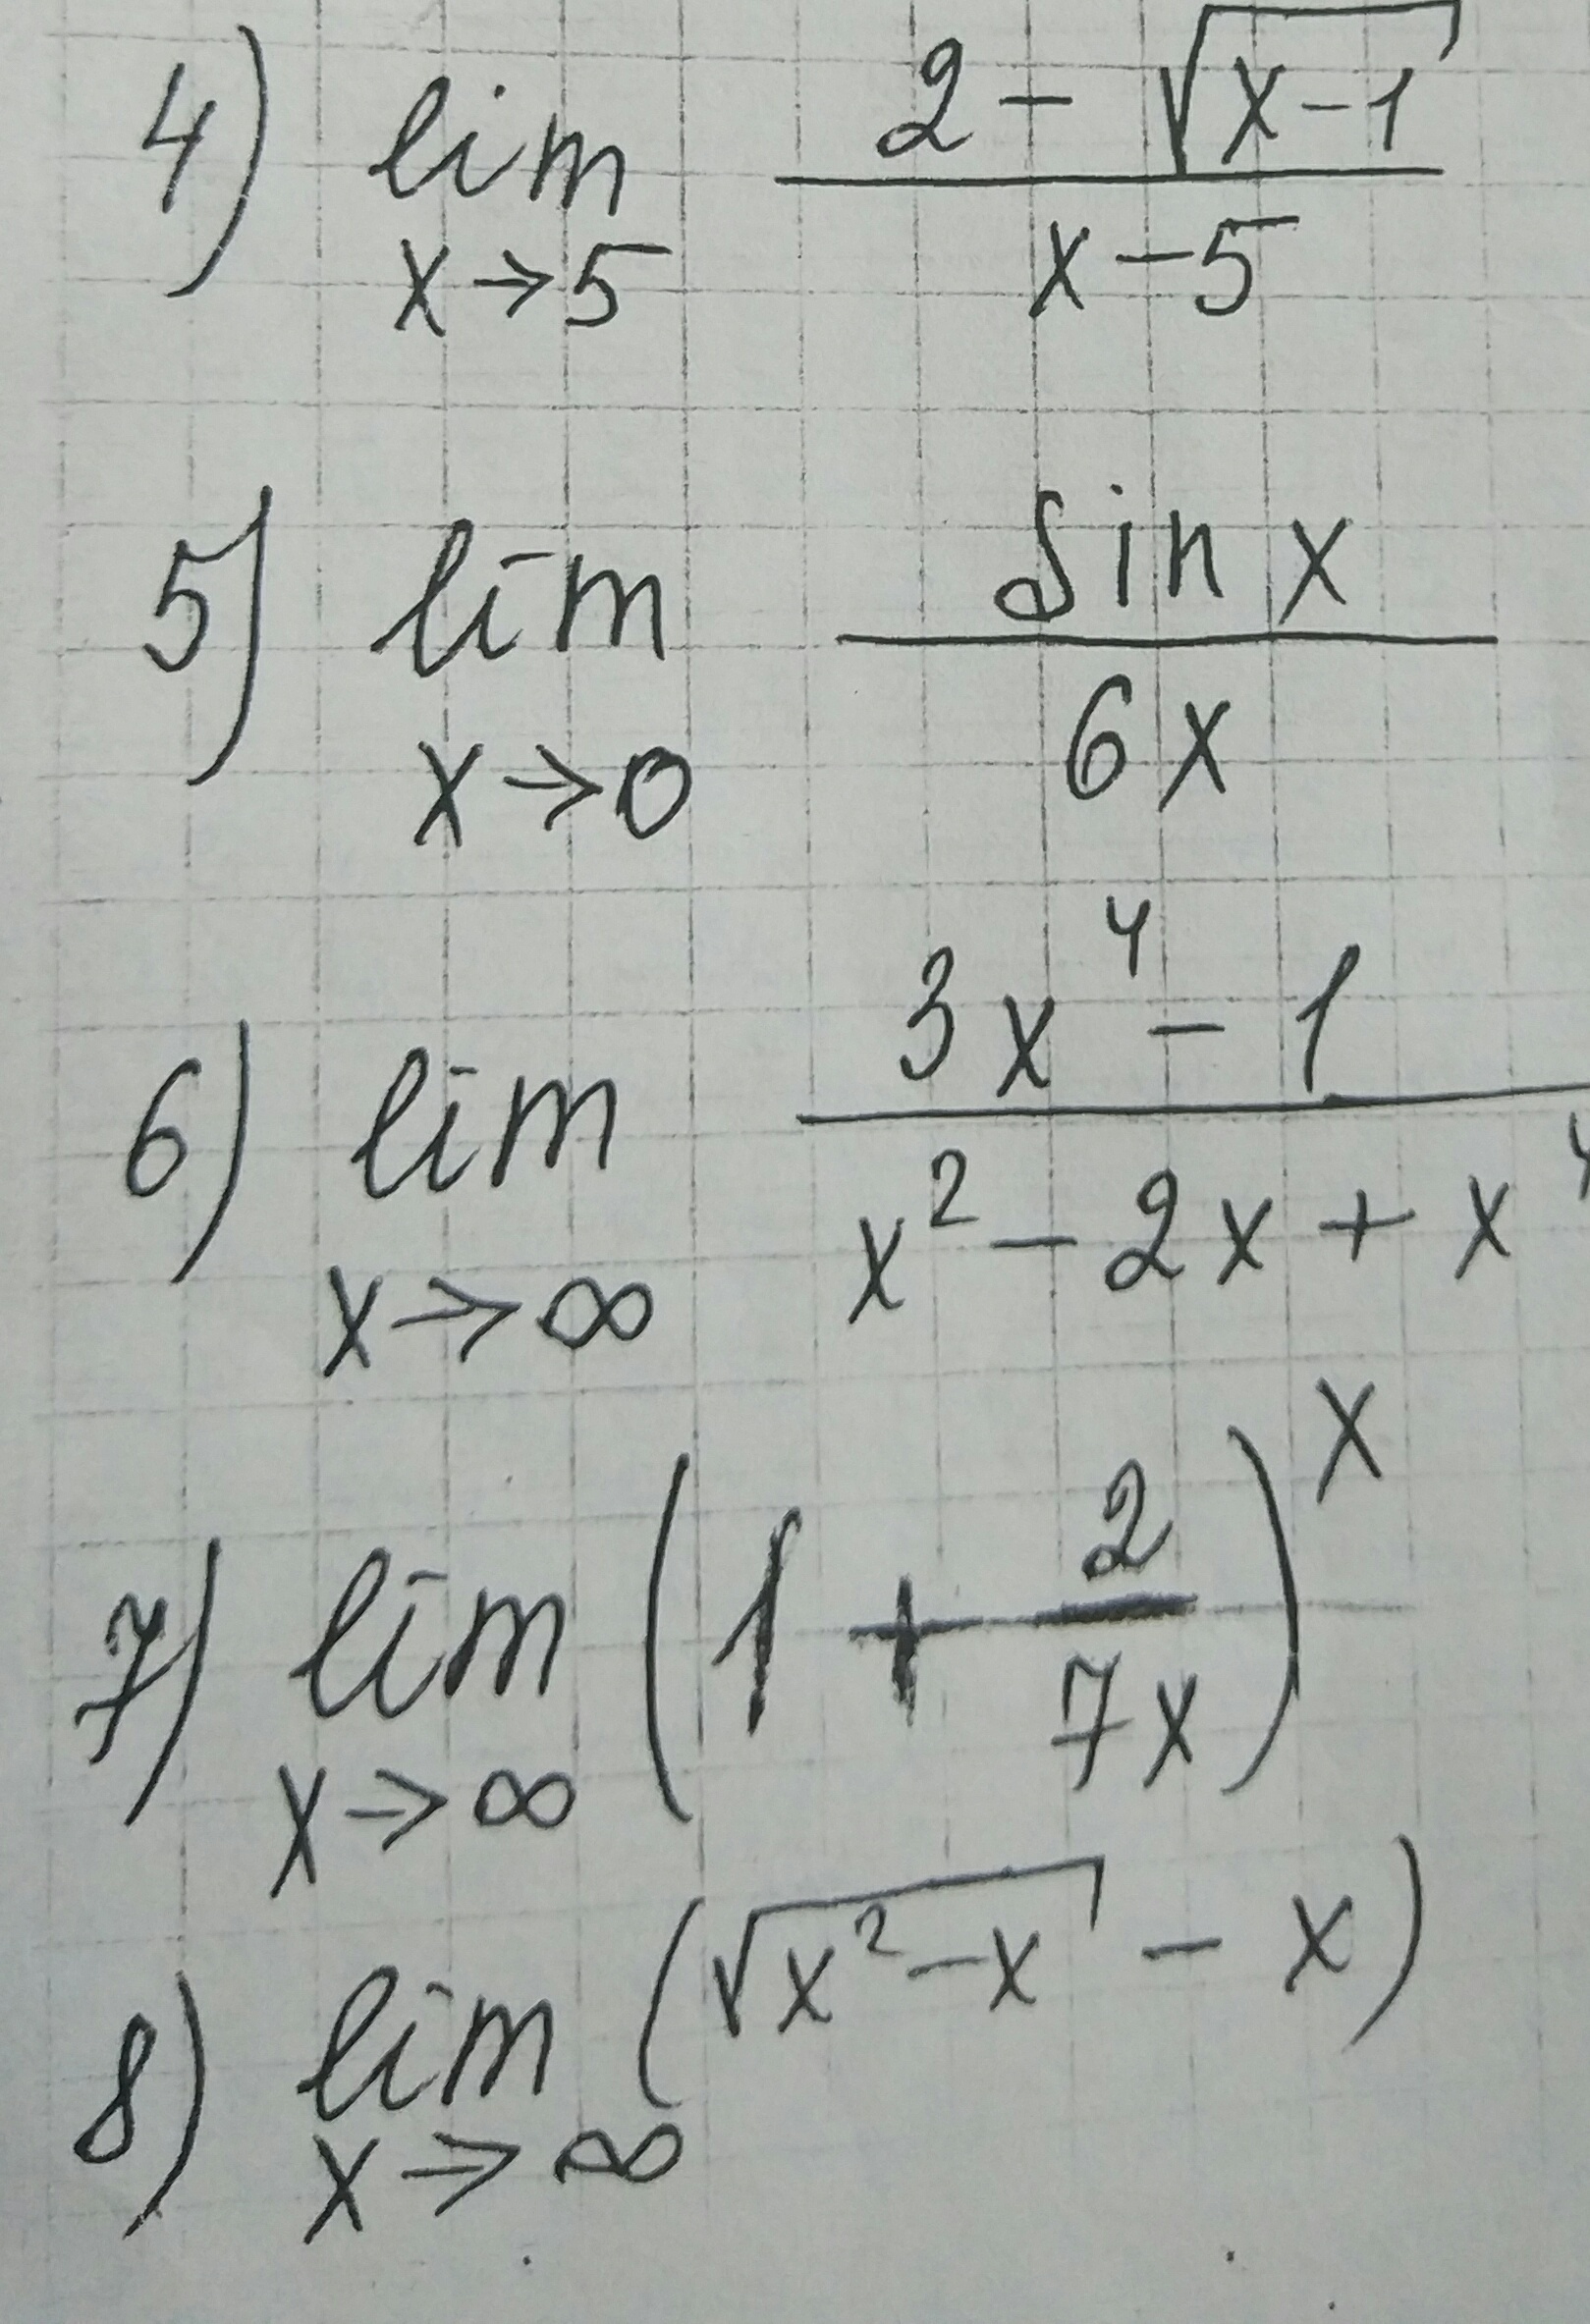 4) lim x→5 (2 - √(x-1)) / (x-5)
5) lim x→0 sin x / 6x
6) lim x→∞ (3x⁴ - 1) / (x² - 2x + x⁴)
7) lim x→∞ (1 + 2/7x)ˣ
8) lim x→∞ (√(x²-x) - x)